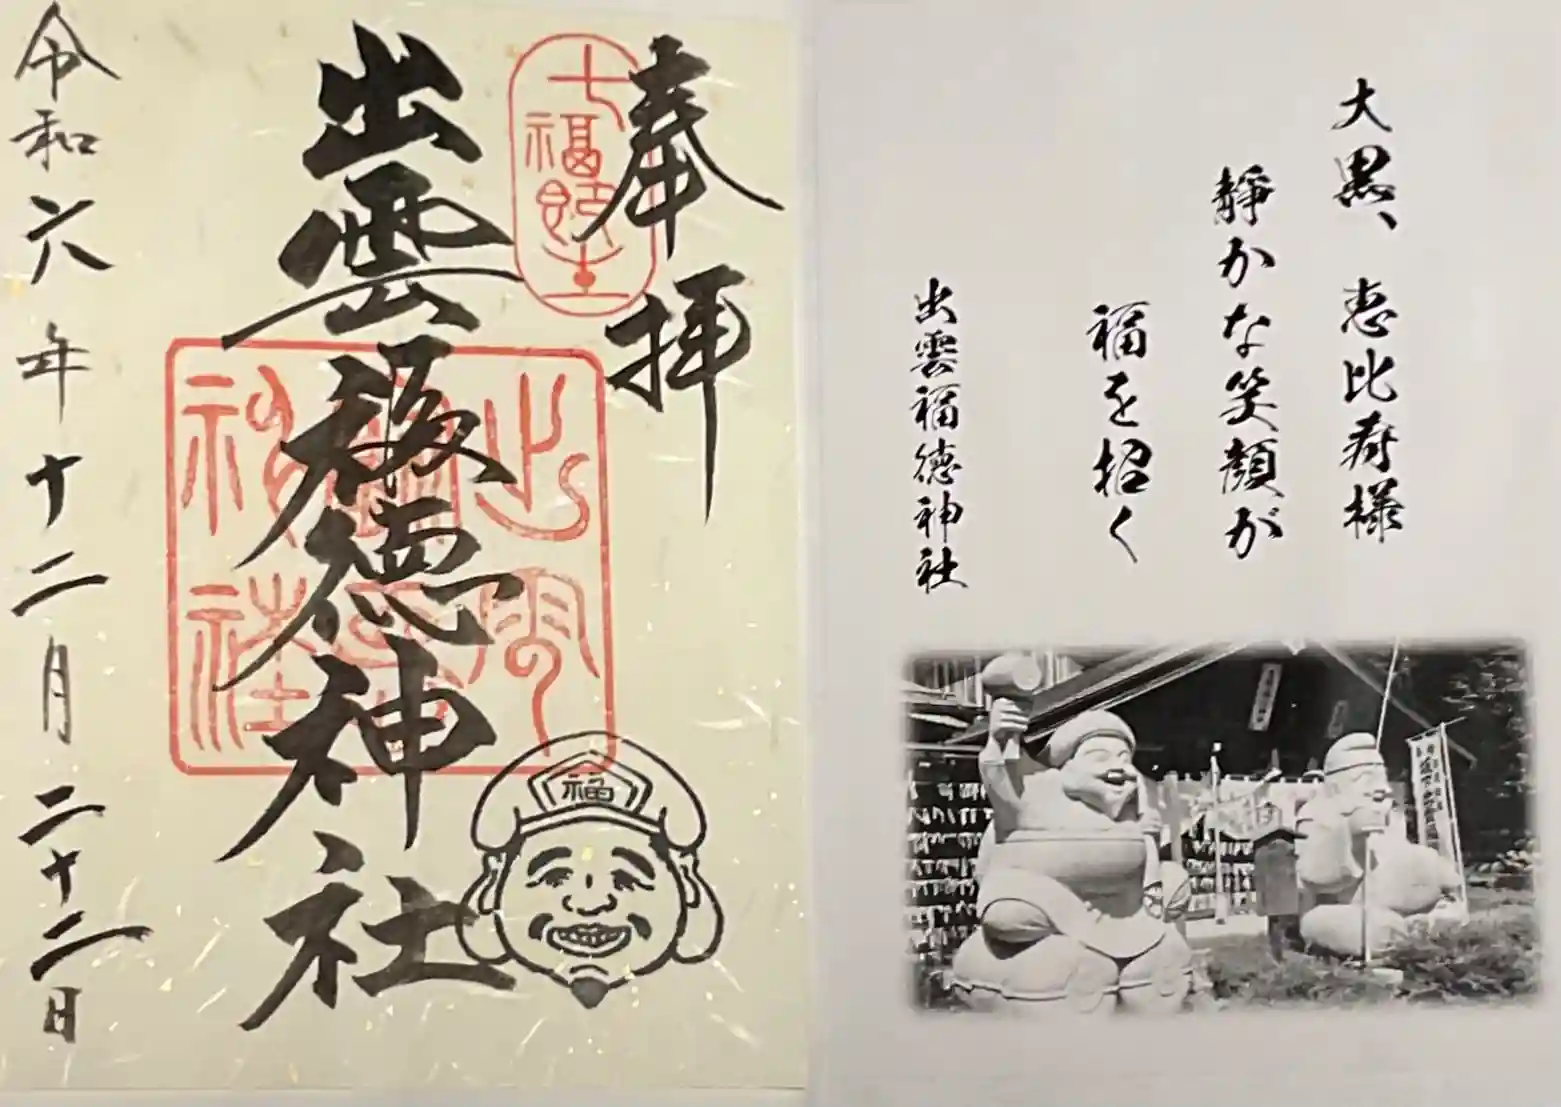 奉拝
七福招土
出雲福徳神社
福
令和六年十二月二十二日
大黒、恵比寿様
静かな笑顔が
福を招く
出雲福徳神社